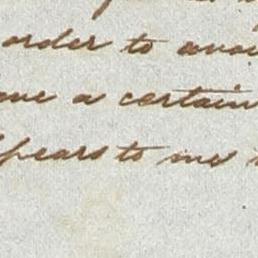 order to avoi
ave a certain
ppears to me